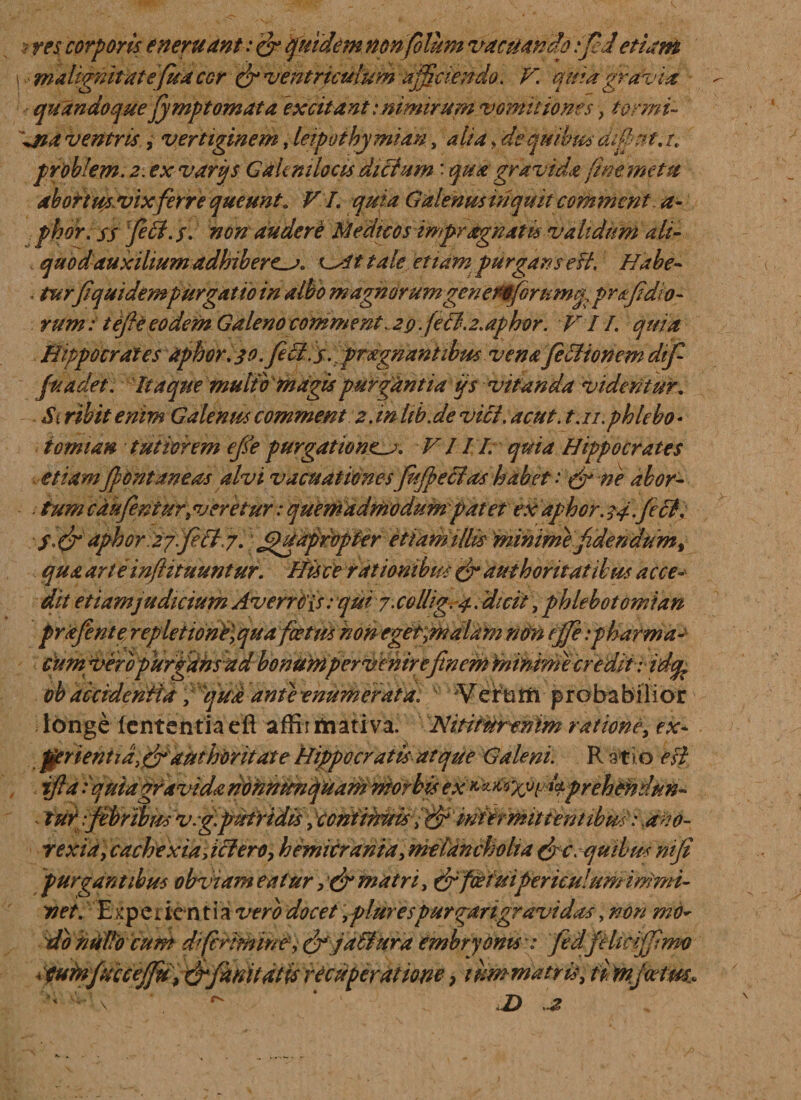 res corporis eneruant: & quidem non solum vacuando: sed etiam
malignitate sua cor & ventriculum afficiendo. V. quia gravia
quandoque symptomata excitant: nimirum vomitiones, tormi-
na ventris, vertiginem, leipothymian, alia, de quibus disput. 1.
problem. 2. ex varijs Galeni locis dictum: quæ gravidæ sine metu
abortus vix ferre queunt. VI. quia Galenus inquit comment. a-
phor. 55 sect. 5. non audere Medicos imprægnatis validum ali-
quod auxilium adhibere. At tale etiam purgans est. Habe-
tur siquidem purgatio in albo magnorum generosorumq; præsidio-
rum: teste eodem Galeno comment. 29. sect. 2. aphor. VII. quia
Hippocrates aphor. 30. sect. 5. prægnantibus venæ sectionem dis-
suadet. Itaque multo magis purgantia ijs vitanda videntur.
Scribit enim Galenus comment 2. in lib. de vict. acut. t. 11. phlebo-
tomian tutiorem esse purgatione. VIII. quia Hippocrates
etiam spontaneas alvi vacuationes suspectas habet: & ne abor-
tum causentur, veretur: quemadmodum patet ex aphor. 34. sect.
5. & aphor 27. sect. 7. Quapropter etiam illis minime fidendum,
quæ arte instituuntur. Hisce rationibus & authoritatibus acce-
dit etiam judicium Averrois: qui 7. collig. 4. dicit, phlebotomian
præsente repletione, qua fœtus non eget, malam non esse: pharma-
cum vero purgans ad bonum pervenire finem minime credit: idq;
ob accidentia, quæ ante enumerata. Verum probabilior
longè sententia est affirmativa. Nititur enim ratione, ex-
perientiâ, & authoritate Hippocratis atque Galeni. Ratio est
ista: quia gravidæ nonnunquam morbis ex prehendun-
tur: febribus v. g. putridis, continuis, & intermittentibus: ano-
rexia, cachexia, ictero, hemicrania, melancholia &c. quibus nisi
purgantibus obviam eatur, & matri, & fœtui periculum immi-
net. Experientia vero docet, plures purgari gravidas, non mo-
do nullo cum discrimine, & jactura embryonis: sed felicissimo
cum successu, & sanitatis recuperatione, tum matris, tum fœtus.
D 2